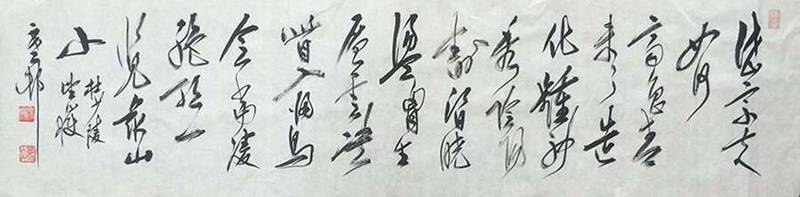 岱宗夫
如何
齊魯青
未了造
化鍾神
秀陰陽
割昏曉
盪胸生
層雲決
眥入歸鳥
會當凌
絕頂一
覽眾山
小
杜少陵
望嶽